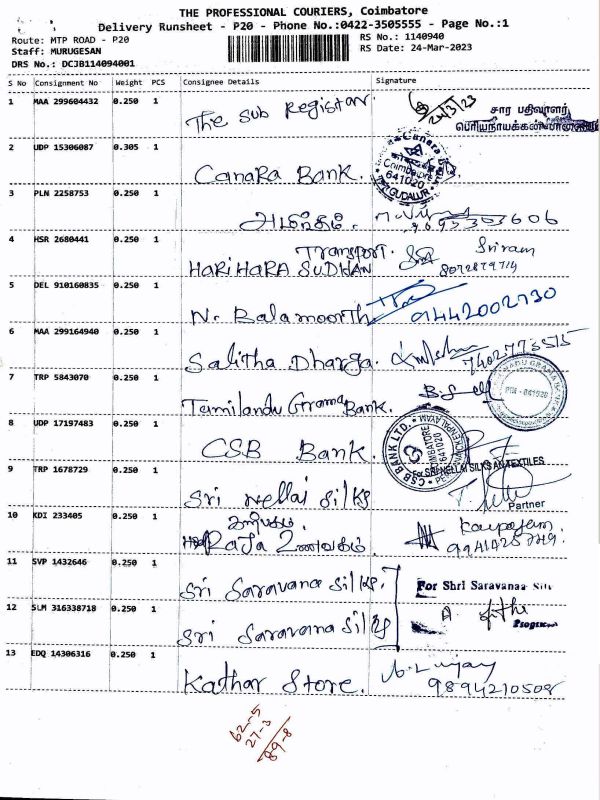 THE PROFESSIONAL COURIERS, Coimbatore
Delivery Runsheet - P20 - Phone No.:0422-3505555 - Page No.:1
Route: MTP ROAD - P20
RS No.: 1140940
Staff: MURUGESAN
RS Date: 24-Mar-2023
DRS No.: DCJB114094001
S No Consignment No Weight PCS Consignee Details Signature
1 MAA 299604432 0.250 1 The Sub Registar 24/3/23
சார பதிவாளர்
பெரியநாயக்கன்
2 UDP 15306087 0.305 1 Canara Bank.
Canara
Coimbatore
641020
GUDALUR
3 PLN 2258753 0.250 1
4 HSR 2680441 0.250 1 Transport. Sriram
HARI HARA SUDHAN
5 DEL 910160835 0.250 1 N. Balamoorth 9442002730
6 MAA 299164940 0.250 1 Salitha Dharga. 7402773515
7 TRP 5843070 0.250 1 Tamilandu Grama Bank.
GRAMA
PIN - 641020
8 UDP 17197483 0.250 1 CSB Bank.
CSB BANK LTD.
COIMBATORE
641020
For SRI NELLAI SILKS AN TEXTILES
9 TRP 1678729 0.250 1 Sri Nellai Silks
Partner
10 KDI 233405 0.250 1 Raja உணவகம்.
11 SVP 1432646 0.250 1 Sri Saravana Silks.
For Shri Saravanaa Silk
12 SLM 316338718 0.250 1 Sri Saravana Silks
13 EDQ 14306316 0.250 1 Kathar Store. 9894210508
62-5
27-3
89-8